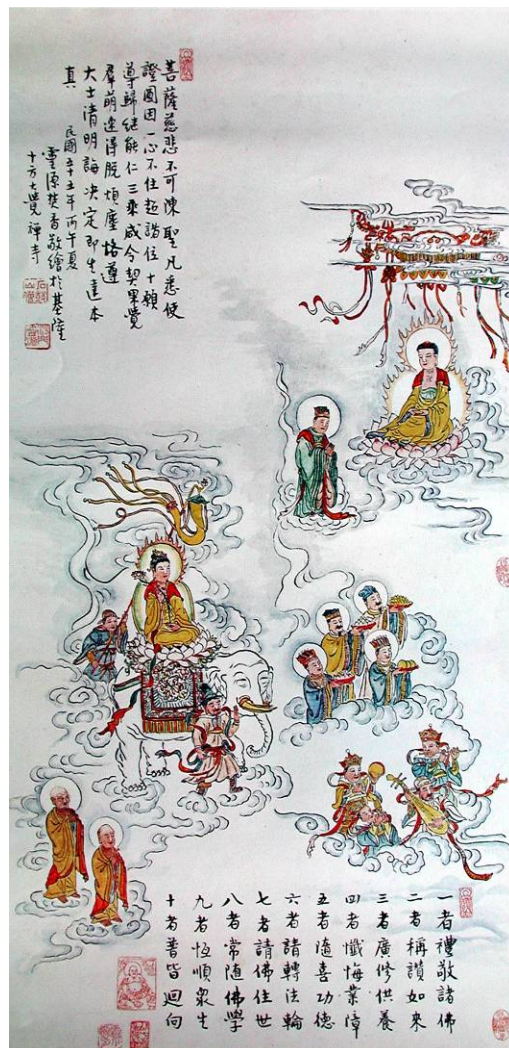 菩薩慈悲不可陳聖凡悉使
證圓因一心不住超諸位十願
導歸繼能仁三乘咸令契果覺
羣萌速得脫煩塵恪遵
大士清明誨決定即生達本
真
民國五十五年丙午夏
靈源焚香敬繪於基隆
十方大覺禪寺
一者禮敬諸佛
二者稱讚如來
三者廣修供養
四者懺悔業障
五者隨喜功德
六者請轉法輪
七者請佛住世
八者常隨佛學
九者恆順眾生
十者普皆迴向